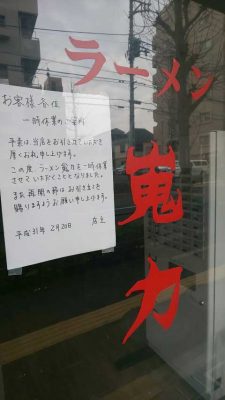 お客様各位
一時休業のご案内
平素は、当店をお引立ていただき
厚くお礼申し上げます。
この度、ラーメン嵬力を一時休業
させていただくこととなりました。
また再開の節はお引き立てを
賜りますようお願い申し上げます。
平成31年 2月20日 店主
ラーメン
嵬力